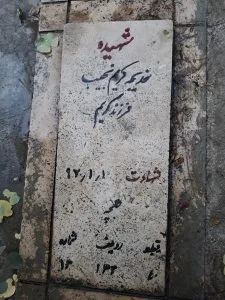 شهیده
خدیجه کریم نجیب
فرزند کریم
شهادت ۶۷/۱/۱
قطعه ردیف شماره
۱۳۲ ۱۶